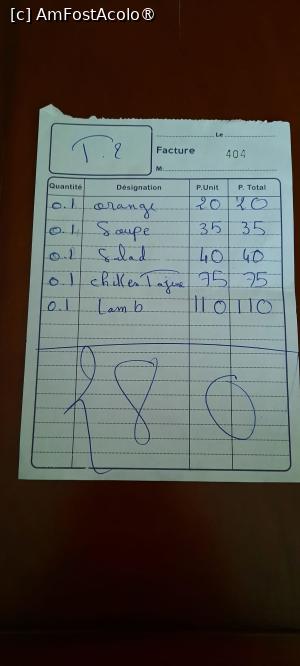 [c] AmFostAcolo®
Le
T.2
Facture 404
M
Quantité Désignation P.Unit P. Total
0.1 orange 20 20
0.1 Soupe 35 35
0.1 Salad 40 40
0.1 chiken Tajine 75 75
0.1 Lamb 110 110
280